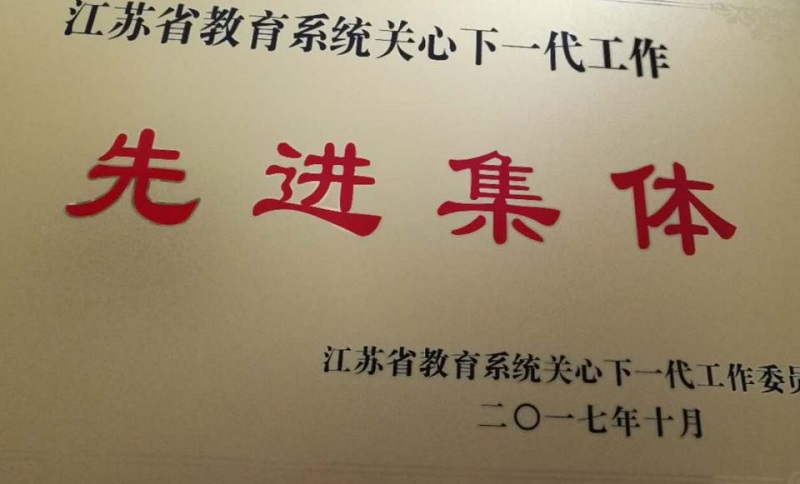 江苏省教育系统关心下一代工作
先进集体
江苏省教育系统关心下一代工作委员
二〇一七年十月